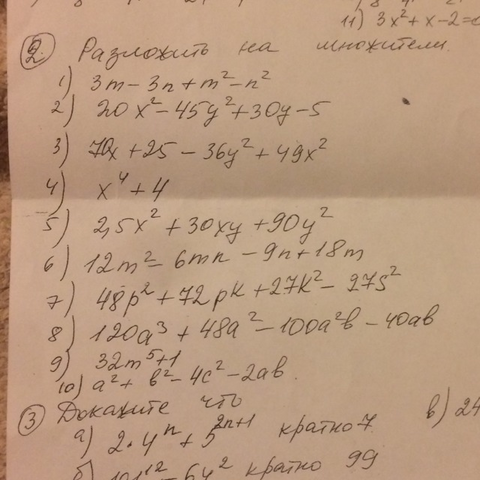 11) 3x² + x - 2 =
② Разложить на множители.
1) 3m - 3n + m² - n²
2) 20x² - 45y² + 30y - 5
3) 70x + 25 - 36y² + 49x²
4) x⁴ + 4
5) 2,5x² + 30xy + 90y²
6) 12m² - 6mn - 9n + 18m
7) 48p² + 72pk + 27k² - 27s²
8) 120a³ + 48a² - 100a²b - 40ab
9) 32m⁵ + 1
10) a² + b² - 4c² - 2ab.
③ Докажите что
а) 2·4ⁿ + 5²ⁿ⁺¹ кратно 7 в) 24
б) кратно 99